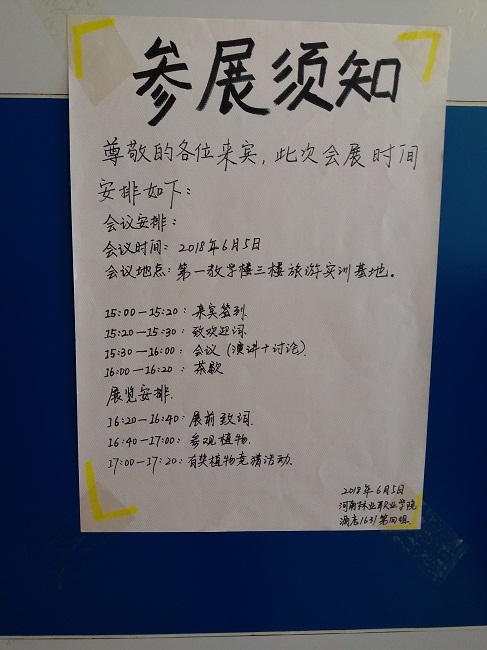 参展须知
尊敬的各位来宾，此次会展时间
安排如下：
会议安排：
会议时间：2018年6月5日
会议地点：第一教学楼三楼旅游实训基地。
15:00—15:20：来宾签到.
15:20—15:30：致欢迎词.
15:30—16:00：会议（演讲+讨论）.
16:00—16:20：茶歇
展览安排.
16:20—16:40：展前致词.
16:40—17:00：参观植物.
17:00—17:20：有奖植物竞猜活动.
2018年6月5日
河南林业职业学院
酒店1631第四组.